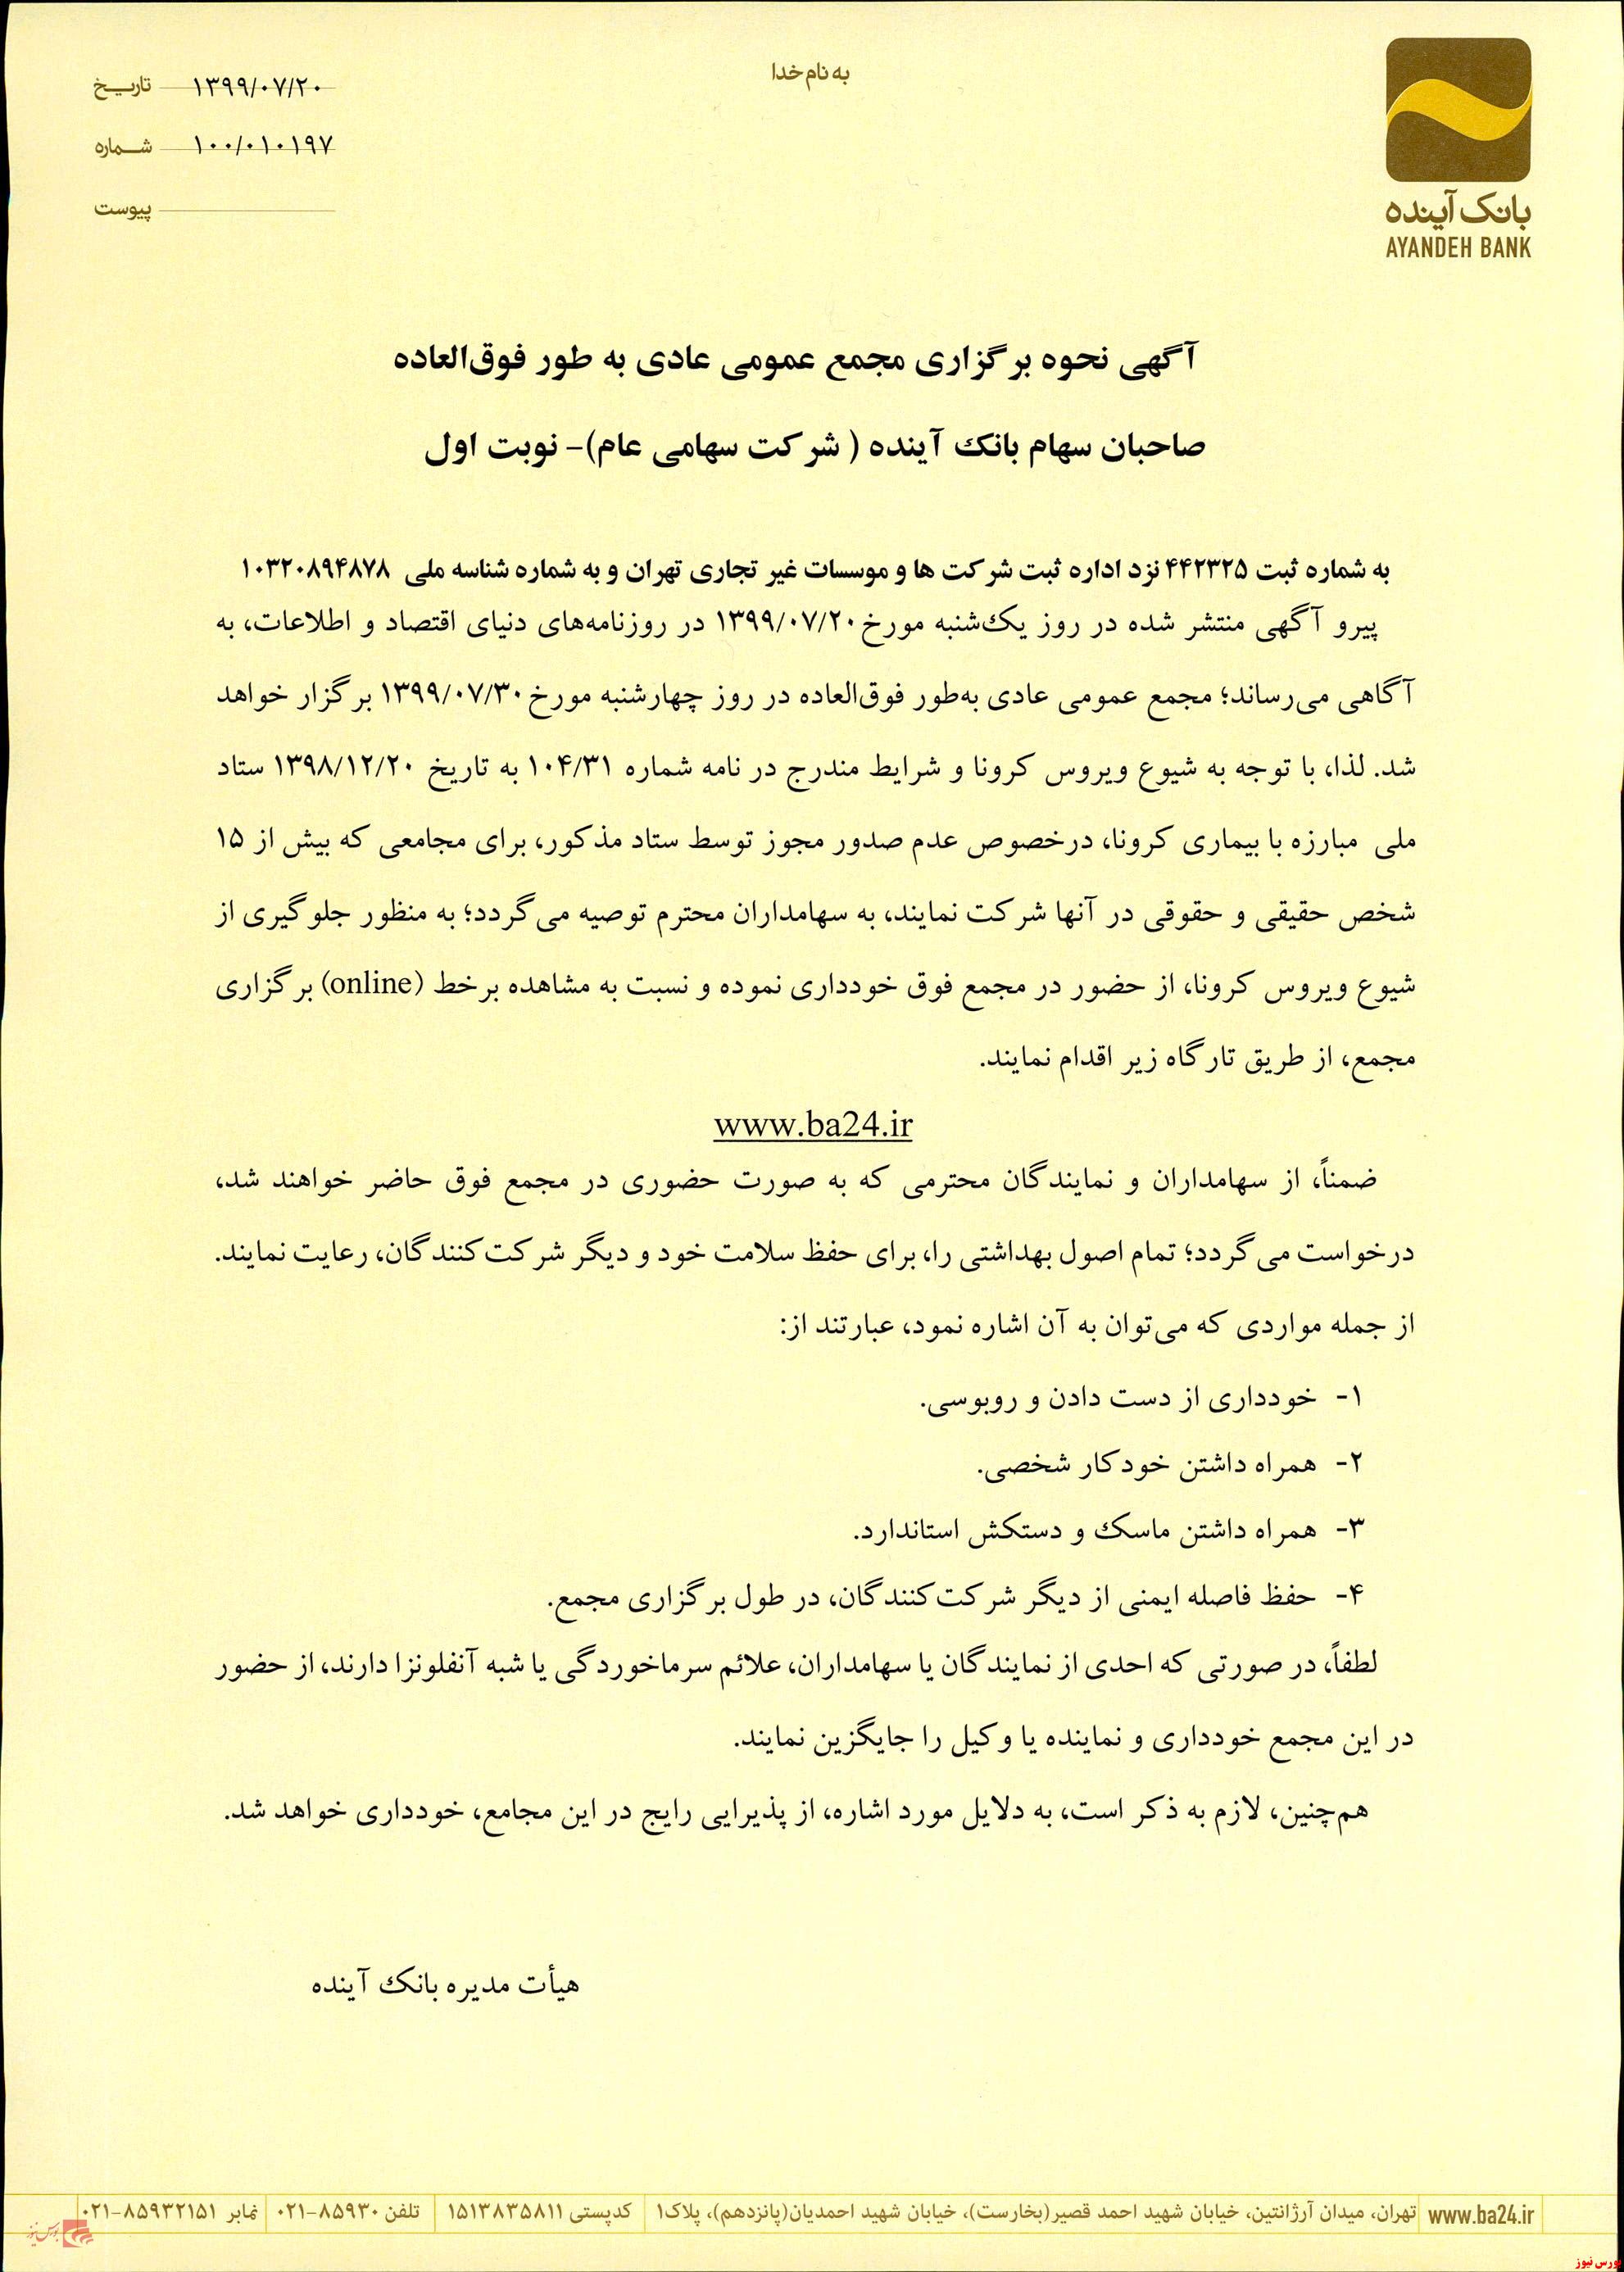 به نام خدا
تاریخ ۱۳۹۹/۰۷/۲۰
شماره ۱۰۰/۰۱۰۱۹۷
پیوست
بانک آینده
AYANDEH BANK
آگهی نحوه برگزاری مجمع عمومی عادی به طور فوق‌العاده
صاحبان سهام بانک آینده ( شرکت سهامی عام)- نوبت اول
به شماره ثبت ۴۴۲۳۲۵ نزد اداره ثبت شرکت ها و موسسات غیر تجاری تهران و به شماره شناسه ملی ۱۰۳۲۰۸۹۴۸۷۸
پیرو آگهی منتشر شده در روز یک‌شنبه مورخ ۱۳۹۹/۰۷/۲۰ در روزنامه‌های دنیای اقتصاد و اطلاعات، به
آگاهی می‌رساند؛ مجمع عمومی عادی به‌طور فوق‌العاده در روز چهارشنبه مورخ ۱۳۹۹/۰۷/۳۰ برگزار خواهد
شد. لذا، با توجه به شیوع ویروس کرونا و شرایط مندرج در نامه شماره ۱۰۴/۳۱ به تاریخ ۱۳۹۸/۱۲/۲۰ ستاد
ملی مبارزه با بیماری کرونا، درخصوص عدم صدور مجوز توسط ستاد مذکور، برای مجامعی که بیش از ۱۵
شخص حقیقی و حقوقی در آنها شرکت نمایند، به سهامداران محترم توصیه می‌گردد؛ به منظور جلوگیری از
شیوع ویروس کرونا، از حضور در مجمع فوق خودداری نموده و نسبت به مشاهده برخط (online) برگزاری
مجمع، از طریق تارگاه زیر اقدام نمایند.
www.ba24.ir
ضمناً، از سهامداران و نمایندگان محترمی که به صورت حضوری در مجمع فوق حاضر خواهند شد،
درخواست می‌گردد؛ تمام اصول بهداشتی را، برای حفظ سلامت خود و دیگر شرکت‌کنندگان، رعایت نمایند.
از جمله مواردی که می‌توان به آن اشاره نمود، عبارتند از:
۱- خودداری از دست دادن و روبوسی.
۲- همراه داشتن خودکار شخصی.
۳- همراه داشتن ماسک و دستکش استاندارد.
۴- حفظ فاصله ایمنی از دیگر شرکت‌کنندگان، در طول برگزاری مجمع.
لطفاً، در صورتی که احدی از نمایندگان یا سهامداران، علائم سرماخوردگی یا شبه آنفلونزا دارند، از حضور
در این مجمع خودداری و نماینده یا وکیل را جایگزین نمایند.
هم‌چنین، لازم به ذکر است، به دلایل مورد اشاره، از پذیرایی رایج در این مجامع، خودداری خواهد شد.
هیأت مدیره بانک آینده
www.ba24.ir تهران، میدان آرژانتین، خیابان شهید احمد قصیر(بخارست)، خیابان شهید احمدیان(پانزدهم)، پلاک۱ کدپستی ۱۵۱۳۸۳۵۸۱۱ تلفن ۰۲۱-۸۵۹۳۰ نمابر ۰۲۱-۸۵۹۳۲۱۵۱
بورس نیوز
بورس نیوز